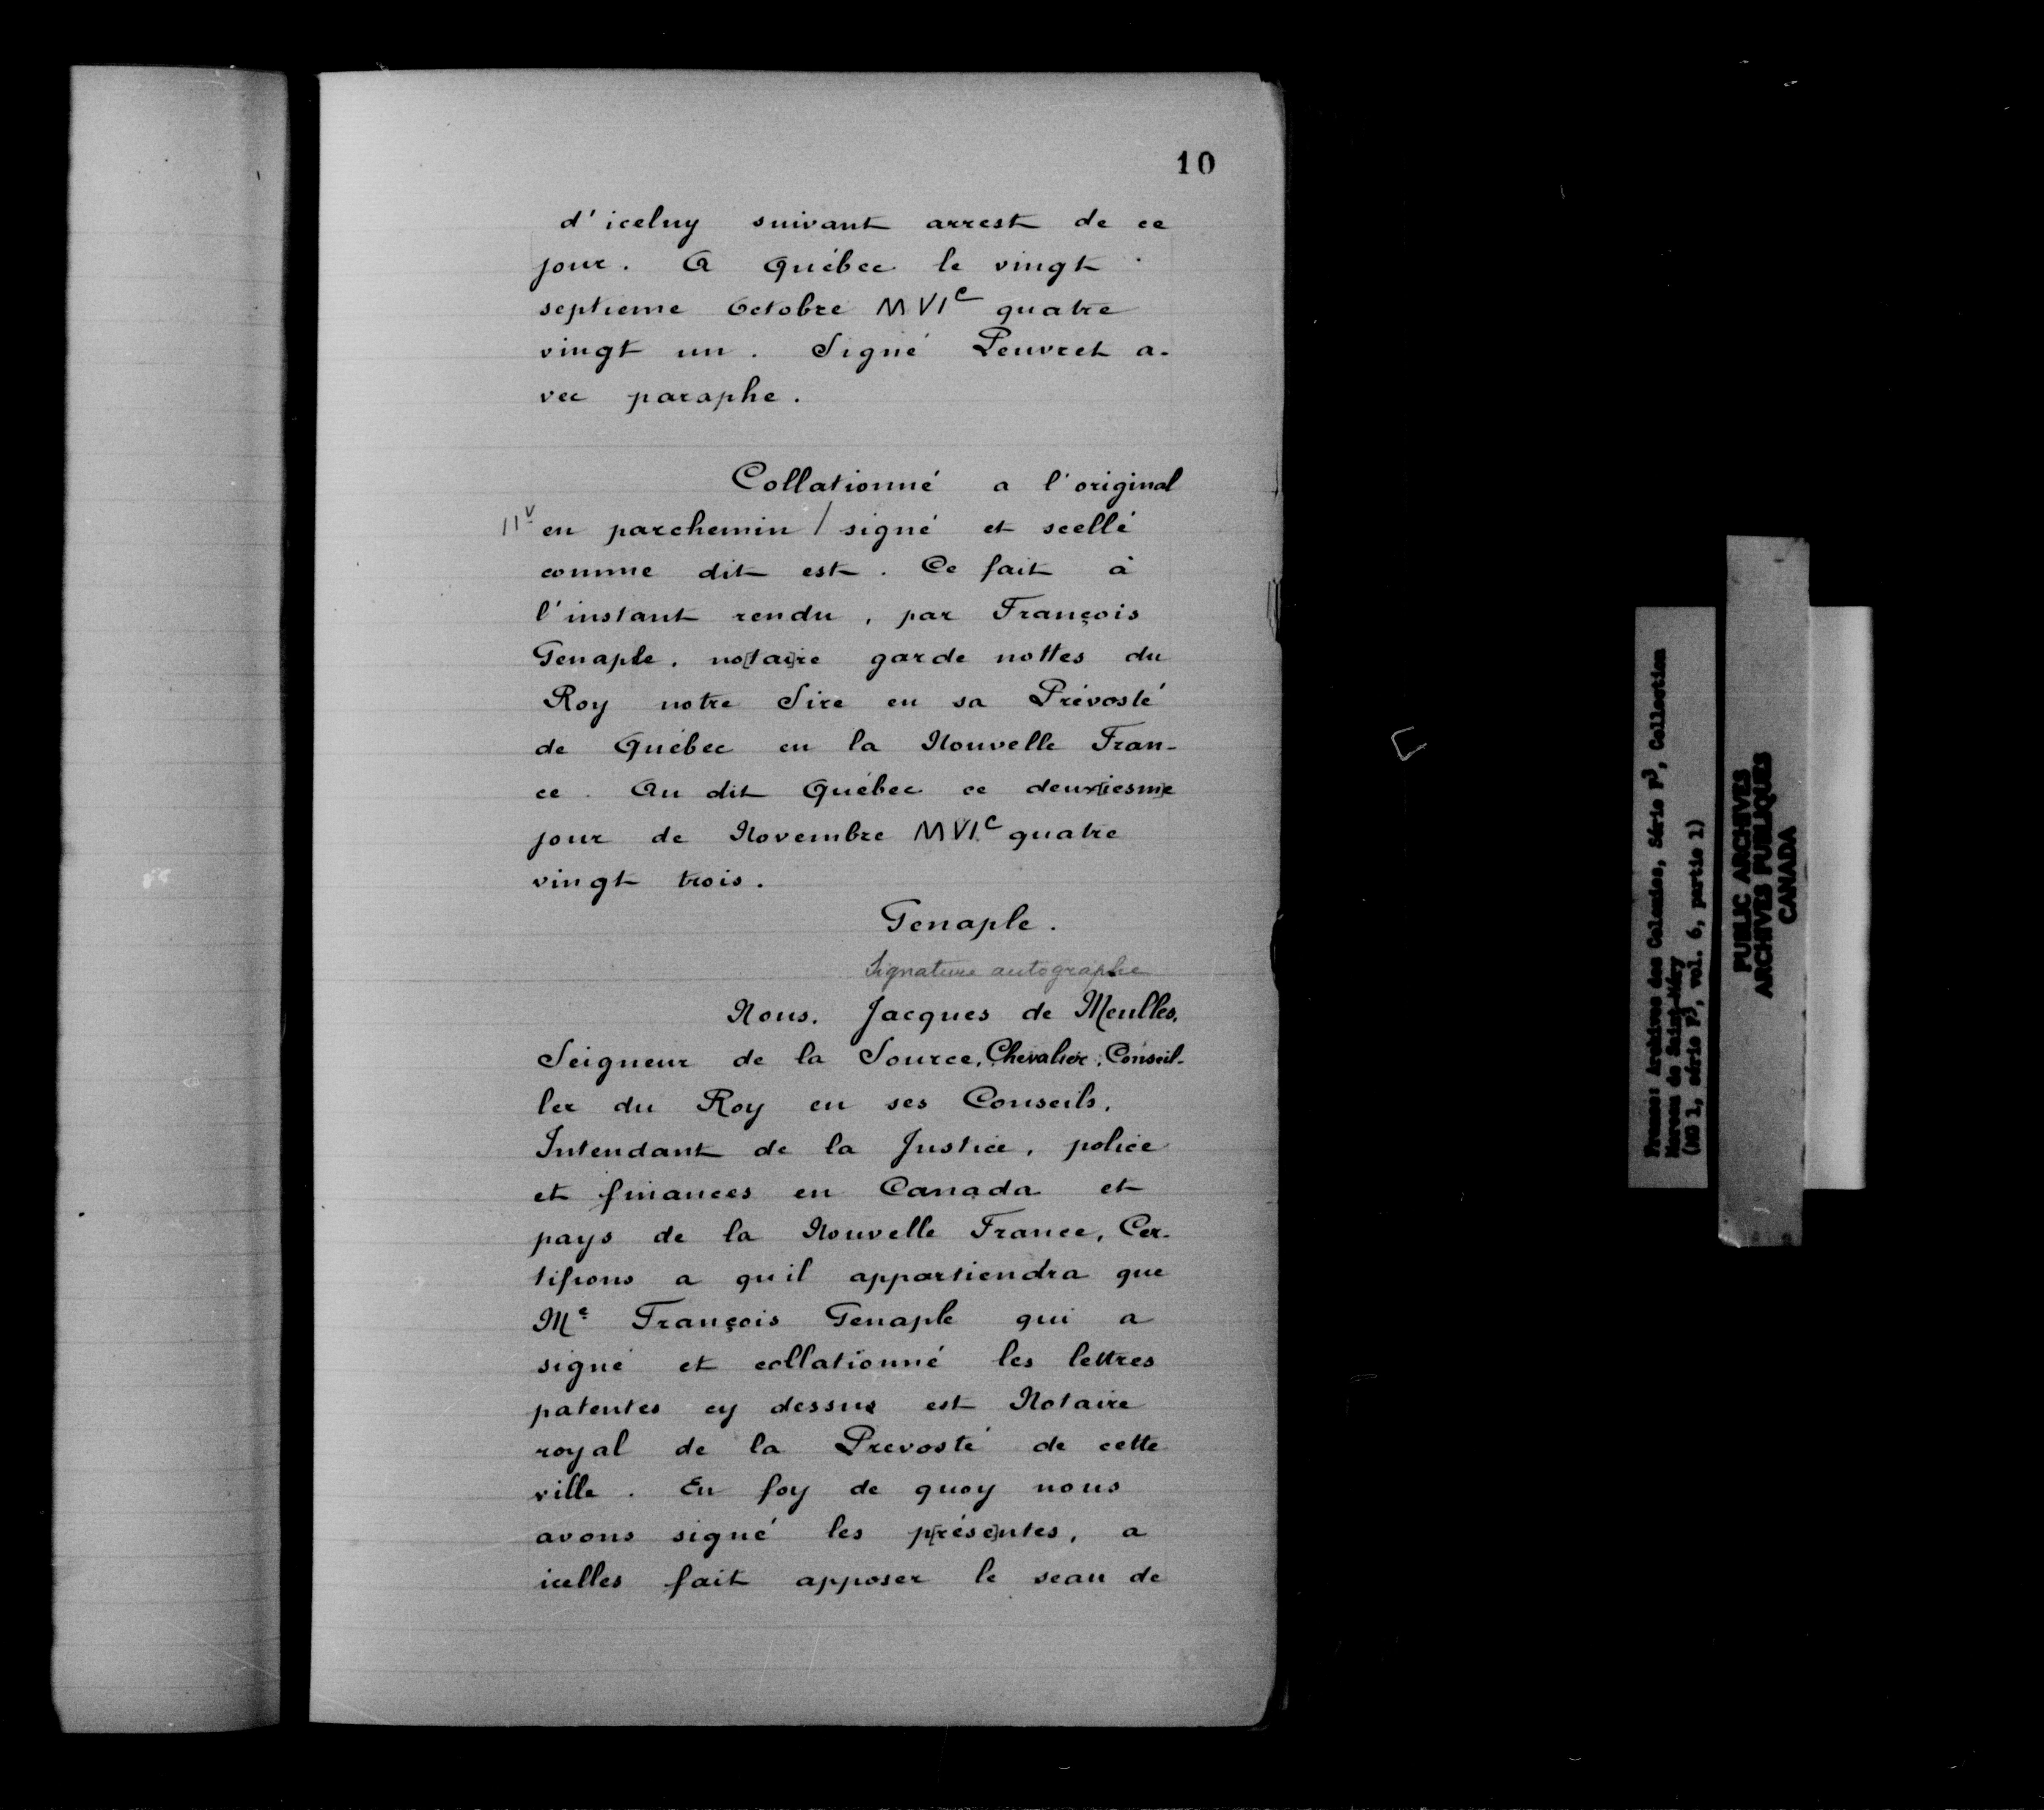 10
d'iceluy suivant arrest de ce
jour. A Québec le vingt
septieme Octobre MVIc quatre
vingt un. Signé Peuvret a-
vec paraphe.
Collationné a l'original
11v en parchemin / signé et scellé
comme dit est. Ce fait à
l'instant rendu, par François
Genaple, no[tai]re garde nottes du
Roy notre Sire en sa Prévosté
de Québec en la Nouvelle Fran-
ce. Au dit Québec ce deux[iesm]e
jour de Novembre MVIc quatre
vingt trois.
Genaple.
Signature autographe
Nous, Jacques de Meulles,
Seigneur de la Source, Chevalier, Conseil-
ler du Roy en ses Conseils,
Intendant de la Justice, police
et finances en Canada et
pays de la Nouvelle France, Cer-
tifions a qu'il appartiendra que
Me François Genaple qui a
signé et collationné les lettres
patentes cy dessus est Notaire
royal de la Prevosté de cette
ville. En foy de quoy nous
avons signé les p[rése]ntes, a
icelles fait apposer le seau de
France: Archives des Colonies, Série F3, Collection
Moreau de Saint-Méry
(MG 1, série F3, vol. 6, partie 1)
PUBLIC ARCHIVES
ARCHIVES PUBLIQUES
CANADA